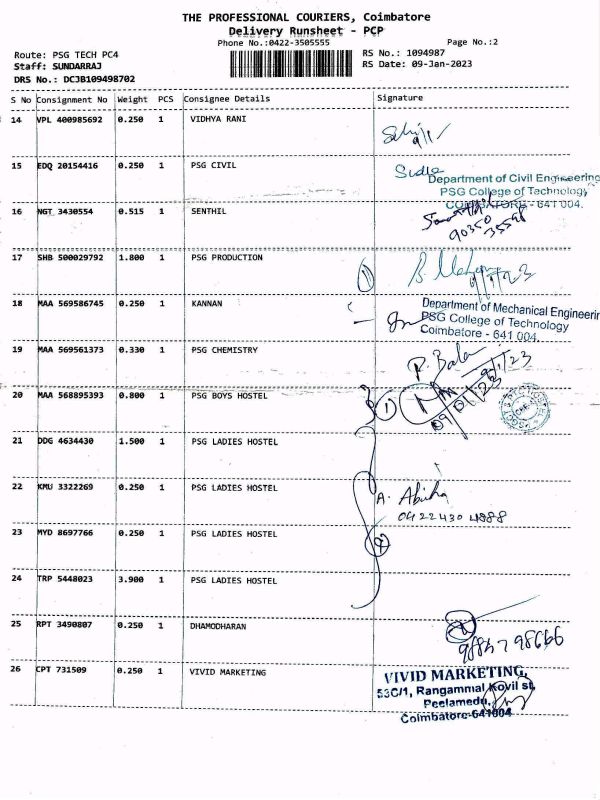 THE PROFESSIONAL COURIERS, Coimbatore
Delivery Runsheet - PCP
Phone No.:0422-3505555
Page No.:2
Route: PSG TECH PC4
RS No.: 1094987
Staff: SUNDARRAJ
RS Date: 09-Jan-2023
DRS No.: DCJB109498702
S No Consignment No Weight PCS Consignee Details Signature
14 VPL 400985692 0.250 1 VIDHYA RANI
9/1/
15 EDQ 20154416 0.250 1 PSG CIVIL
Department of Civil Engineering
PSG College of Technology
COIMBATORE - 641 004.
16 NGT 3430554 0.515 1 SENTHIL
90350
35598
17 SHB 500029792 1.800 1 PSG PRODUCTION
1
18 MAA 569586745 0.250 1 KANNAN
Department of Mechanical Engineerin
PSG College of Technology
Coimbatore - 641 004.
19 MAA 569561373 0.330 1 PSG CHEMISTRY
R. Bala
9/1/23
20 MAA 568895393 0.800 1 PSG BOYS HOSTEL
1
09/01/23
21 DDG 4634430 1.500 1 PSG LADIES HOSTEL
22 KMU 3322269 0.250 1 PSG LADIES HOSTEL
A. Abisha
0422 430 4888
23 MYD 8697766 0.250 1 PSG LADIES HOSTEL
4
24 TRP 5448023 3.900 1 PSG LADIES HOSTEL
25 RPT 3490807 0.250 1 DHAMODHARAN
26 CPT 731509 0.250 1 VIVID MARKETING
VIVID MARKETING,
53C/1, Rangammal Kovil st,
Peelamedu,
Coimbatore-641004